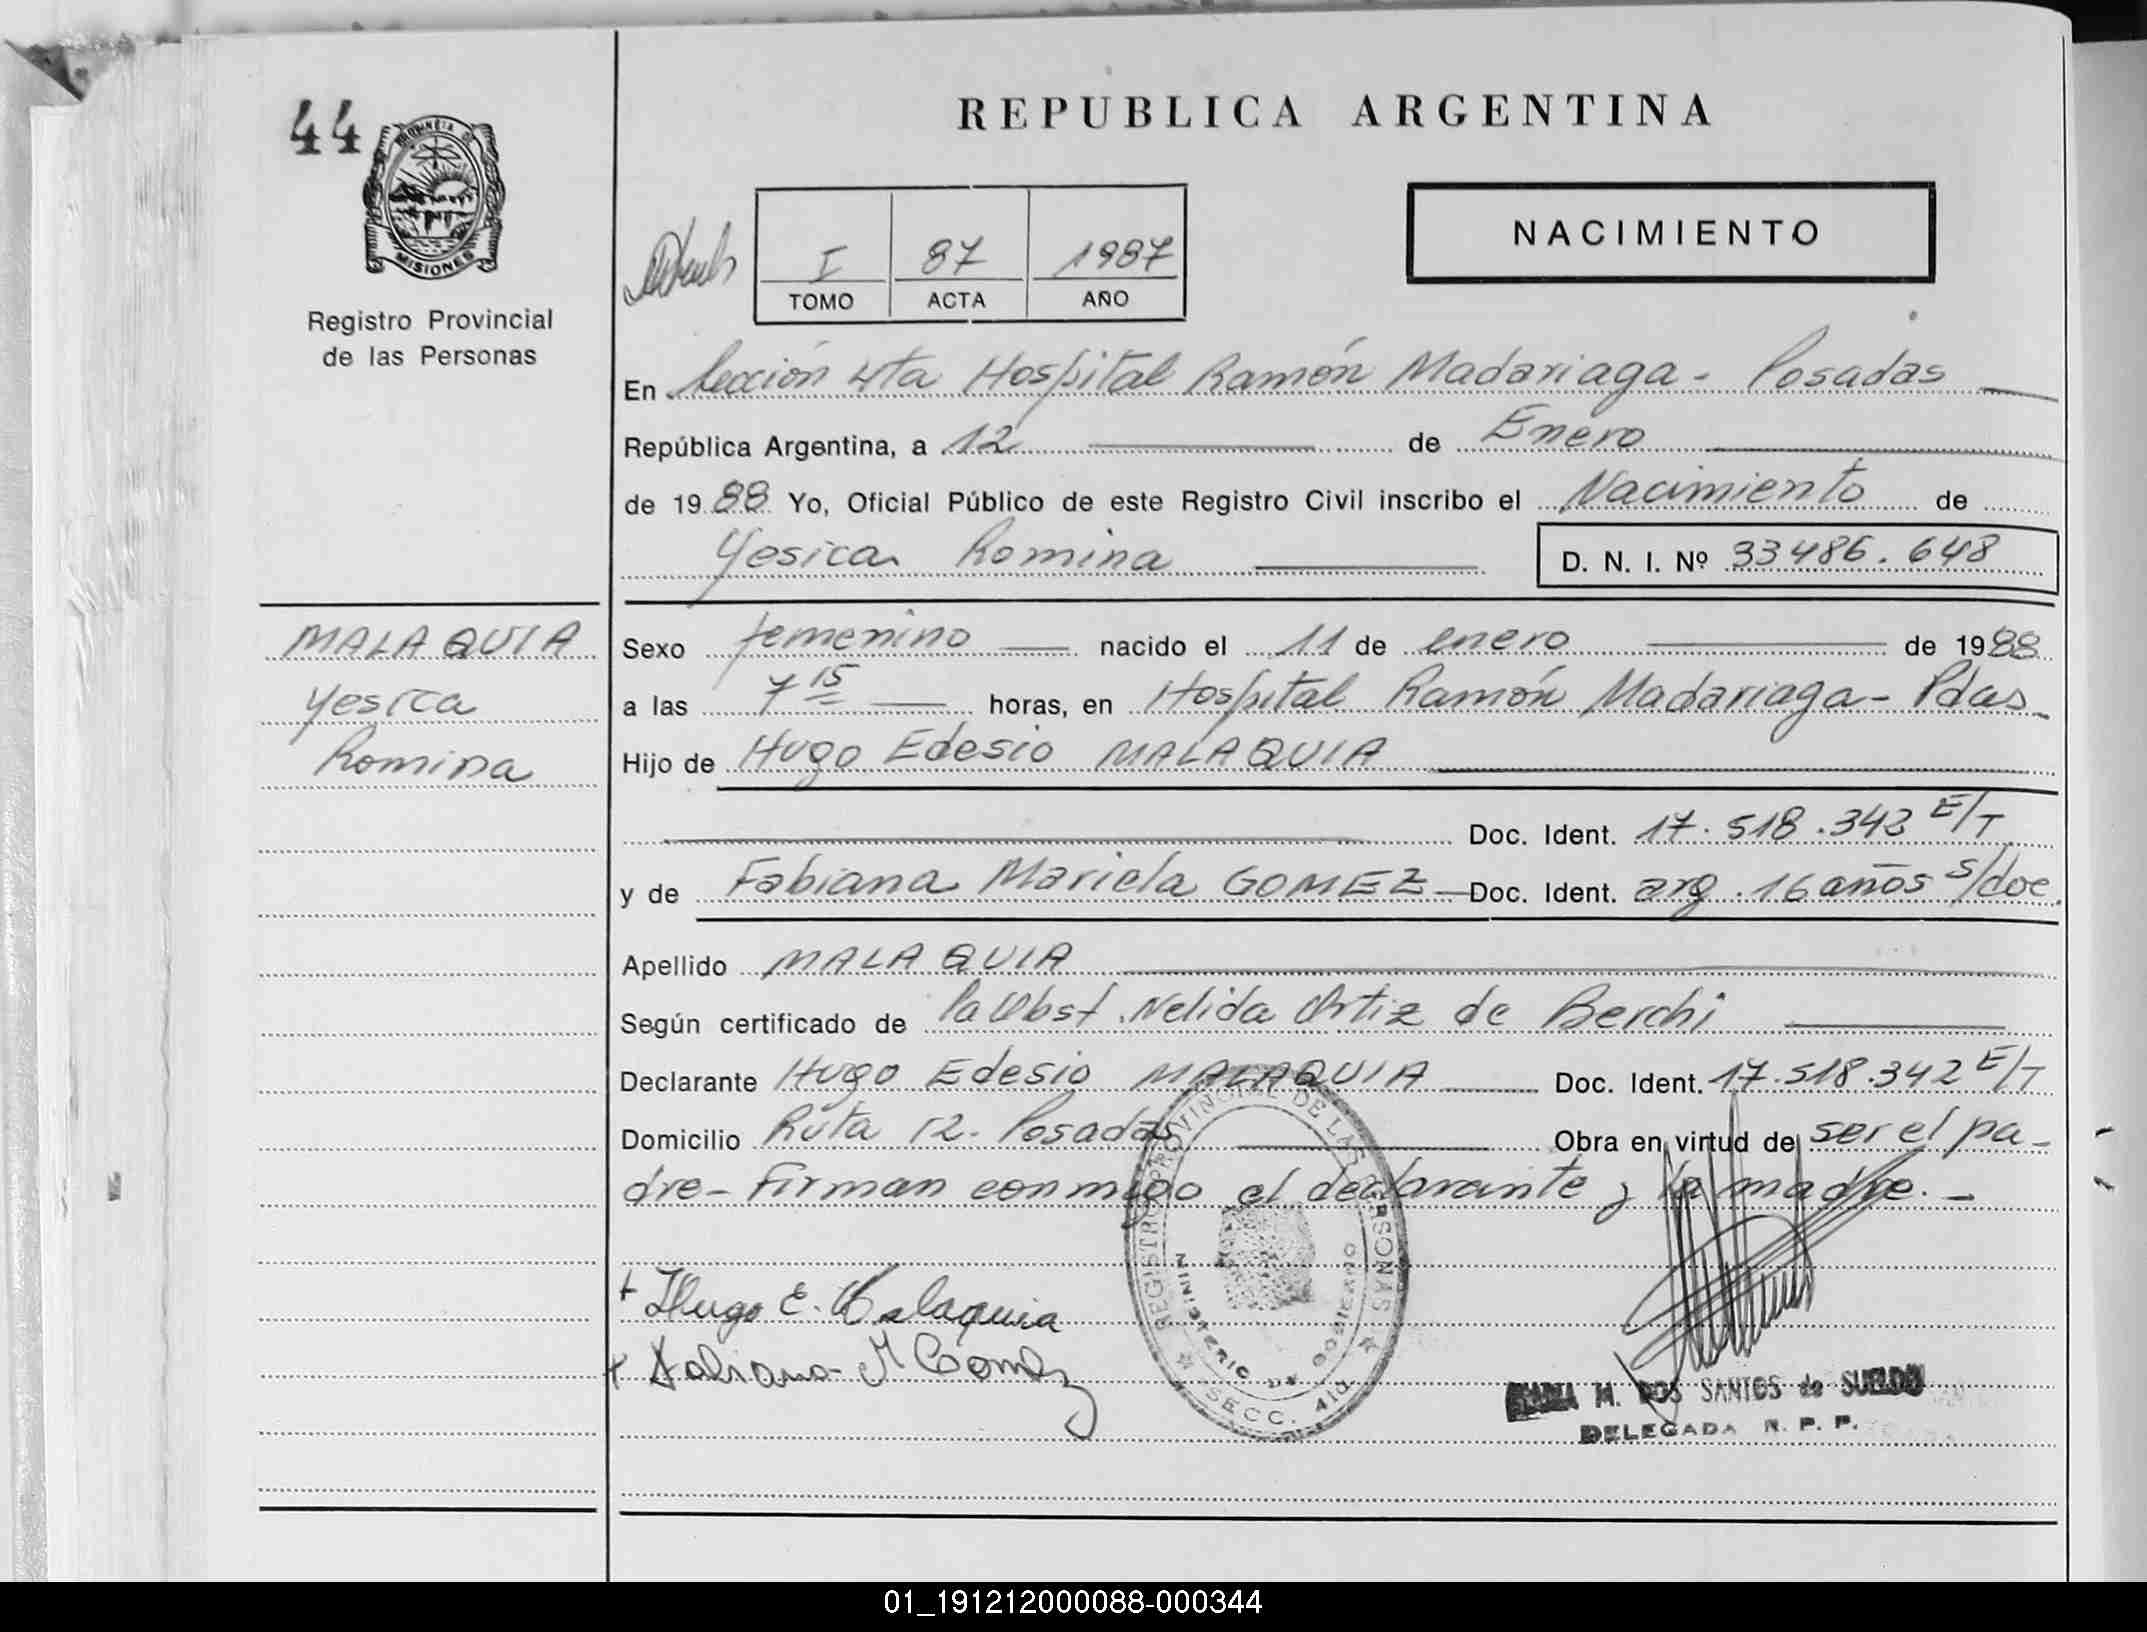 44
REPUBLICA ARGENTINA
PROVINCIA DE
MISIONES
Registro Provincial
de las Personas
NACIMIENTO
I 87 1987
TOMO ACTA AÑO
En Sección 4ta Hospital Ramón Madariaga - Posadas
República Argentina, a 12 de Enero
de 1988 Yo, Oficial Público de este Registro Civil inscribo el Nacimiento de
Yesica Romina D. N. I. Nº 33486.648
MALAQUIA
Yesica
Romina
Sexo femenino nacido el 11 de enero de 1988
a las 7 15 horas, en Hospital Ramón Madariaga - Pdas
Hijo de Hugo Edesio MALAQUIA
Doc. Ident. 17.518.342 E/T
y de Fabiana Mariela GOMEZ - Doc. Ident. arg. 16 años s/doc
Apellido MALAQUIA
Según certificado de la Obst. Nelida Ortiz de Berchi
Declarante Hugo Edesio MALAQUIA Doc. Ident. 17.518.342 E/T
Domicilio Ruta 12. Posadas Obra en virtud de ser el pa-
dre - Firman conmigo el declarante y la madre. -
REGISTRO PROVINCIAL DE LAS PERSONAS
MINISTERIO DE GOBIERNO
SECC. 4ta
+ Hugo E. Malaquia
+ Fabiana M Gomez
M. DOS SANTOS de SUELDO
DELEGADA R. P. P.
01_191212000088-000344